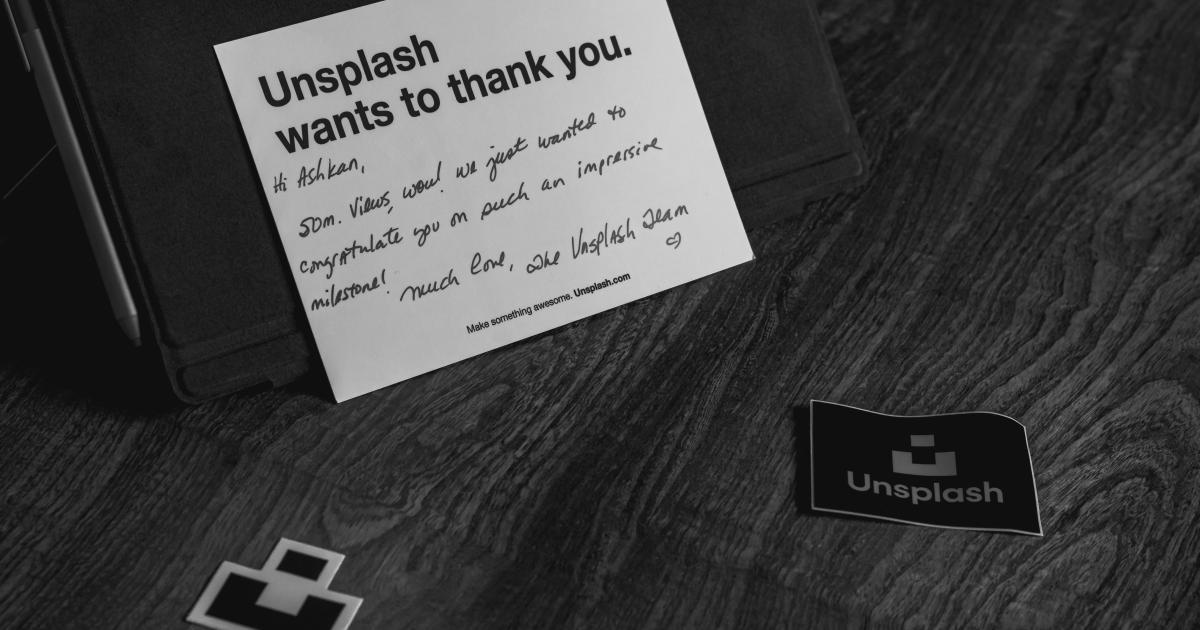 Unsplash
wants to thank you.
Hi Ashkan,
50m. Views, wow! we just wanted to
congratulate you on such an impressive
milestone! much love, The Unsplash Team
Make something awesome. Unsplash.com
Unsplash